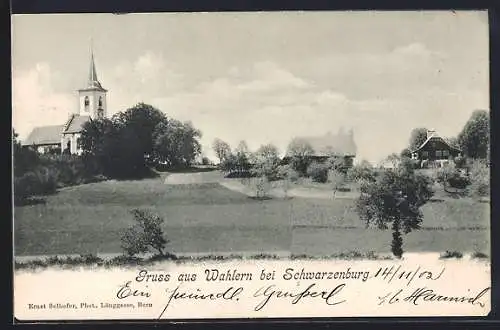 Gruss aus Wahlern bei Schwarzenburg. 14/11 02
Ein freundl. Grüsserl
Ernst Selhofer, Phot., Länggasse, Bern